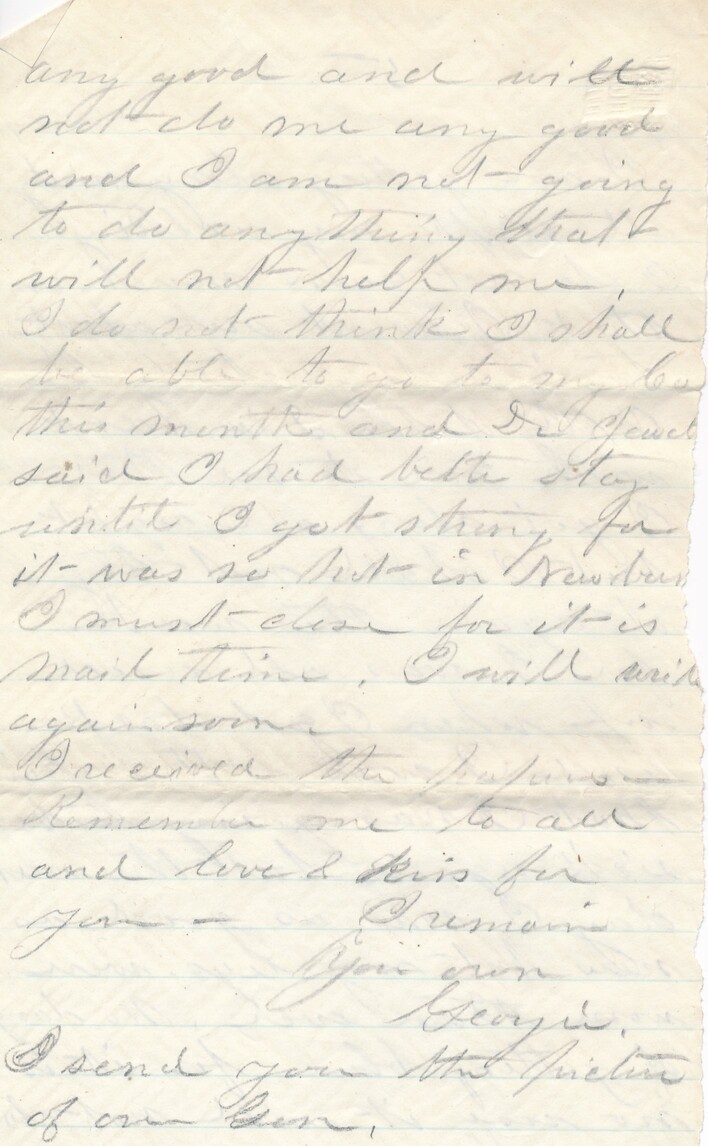 any good and will
not do me any good
and I am not going
to do anything that
will not help me.
I do not think I shall
be able to go to my Co
this month and Dr Jewel
said I had better stay
until I got strong for
it was so hot in Newbern
I must close for it is
mail time. I will write
again soon.
I received the papers—
Remember me to all
and love & kiss for
you — I remain
Your own
Georgie.
I send you the picture
of our Gen.